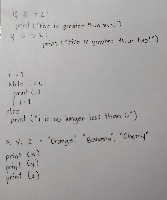 if 5 > 2:
print("Five is greater than two!")
if 5 > 2:
print("Five is greater than two!")
i = 1
while i < 6:
print(i)
i += 1
else:
print("i is no longer less than 6")
x, y, z = "Orange", "Banana", "Cherry"
print(x)
print(y)
print(z)